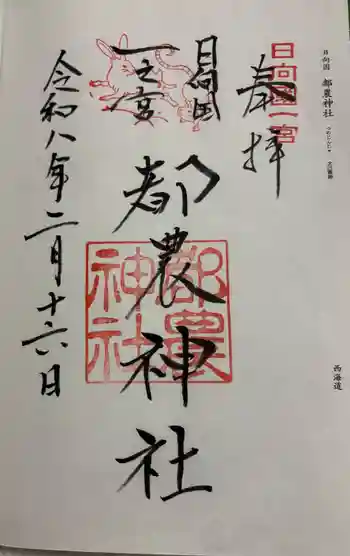 日向国 都農神社
つのじんじゃ
西海道
日向国一宮
奉拝
日向国
一之宮
都農神社
都農
神社
令和八年二月十六日